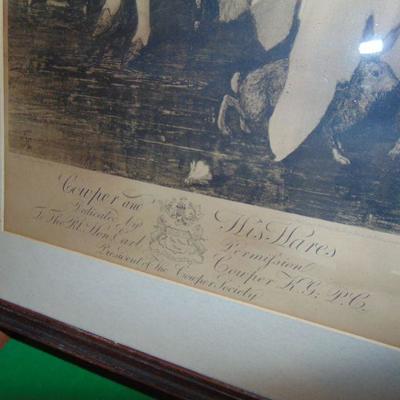 Cowper and His Hares
Dedicated by Permission
To The Rt. Hon. Earl Cowper K.G; P.C.
President of the Cowper Society